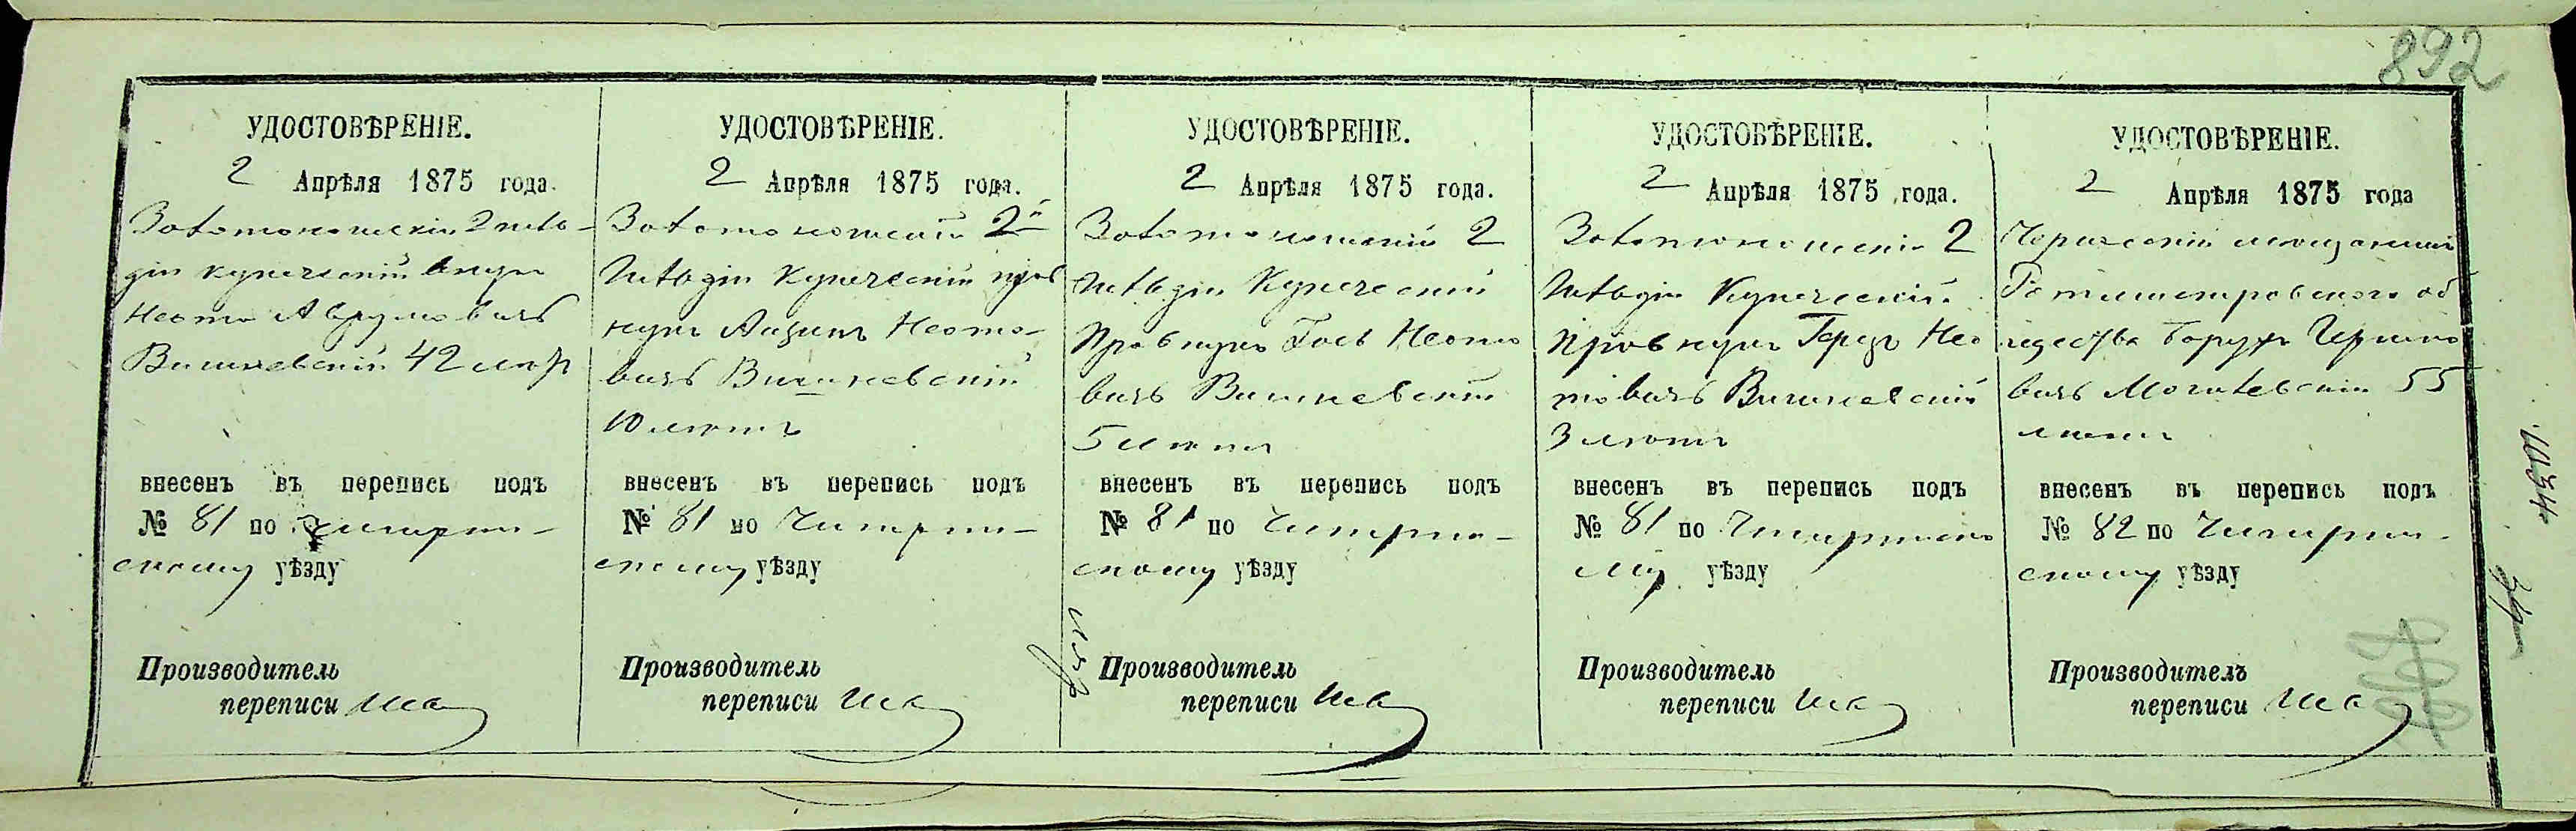 892
УДОСТОВѢРЕНІЕ.
2 Апрѣля 1875 года.
Золотоношскій 2 гиль-
діи купеческій внукъ
Нотa Аврумовичъ
Вишневскій 42 лѣтъ
внесенъ въ перепись подъ
№ 81 по Чигирин-
скому уѣзду
Производитель
переписи
УДОСТОВѢРЕНІЕ.
2 Апрѣля 1875 года.
Золотоношскій 2й
Гильдіи Купеческій прав
нукъ Айзикъ Ното-
вичъ Вишневскій
10 лѣтъ
внесенъ въ перепись подъ
№ 81 по Чигирин-
скому уѣзду
Производитель
переписи
УДОСТОВѢРЕНІЕ.
2 Апрѣля 1875 года.
Золотоношскій 2
Гильдіи Купеческій
Правнукъ Ното
вичъ Вишневскій
5 лѣтъ
внесенъ въ перепись подъ
№ 81 по Чигирин-
скому уѣзду
Производитель
переписи
УДОСТОВѢРЕНІЕ.
2 Апрѣля 1875 года.
Золотоношскій 2
Гильдіи Купеческій
Правнукъ Герцъ Но
товичъ Вишневскій
3 лѣтъ
внесенъ въ перепись подъ
№ 81 по Чигиринско
му уѣзду
Производитель
переписи
УДОСТОВѢРЕНІЕ.
2 Апрѣля 1875 года
мѣщанинъ
Ротмистровскаго об
щества Борухъ
вичъ Могилевскій 55
лѣтъ
внесенъ въ перепись подъ
№ 82 по Чигирин-
скому уѣзду
Производитель
переписи